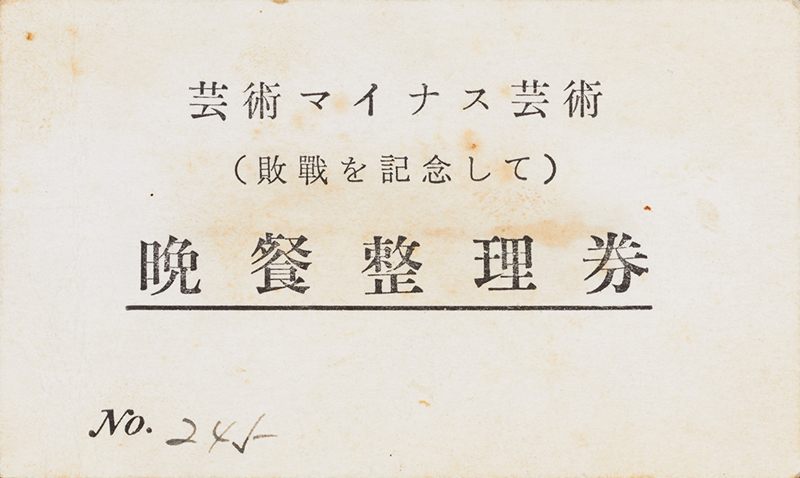 芸術マイナス芸術
(敗戰を記念して)
晩餐整理券
No. 245